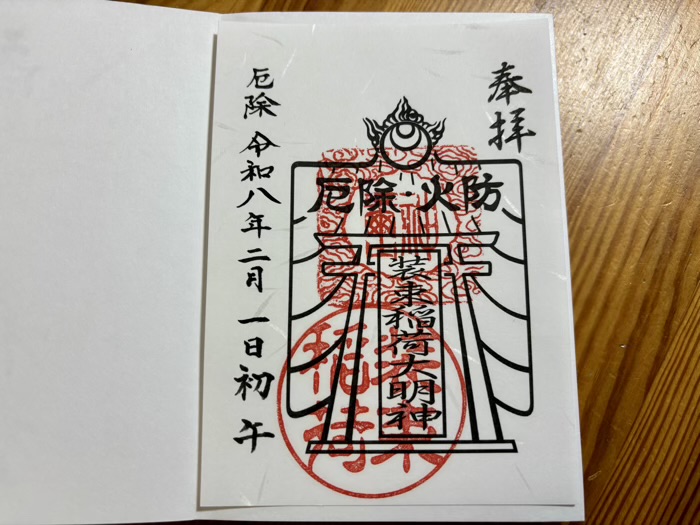 奉拝
厄除・火防
装束稲荷大明神
装束
稲荷
厄除 令和八年二月一日初午